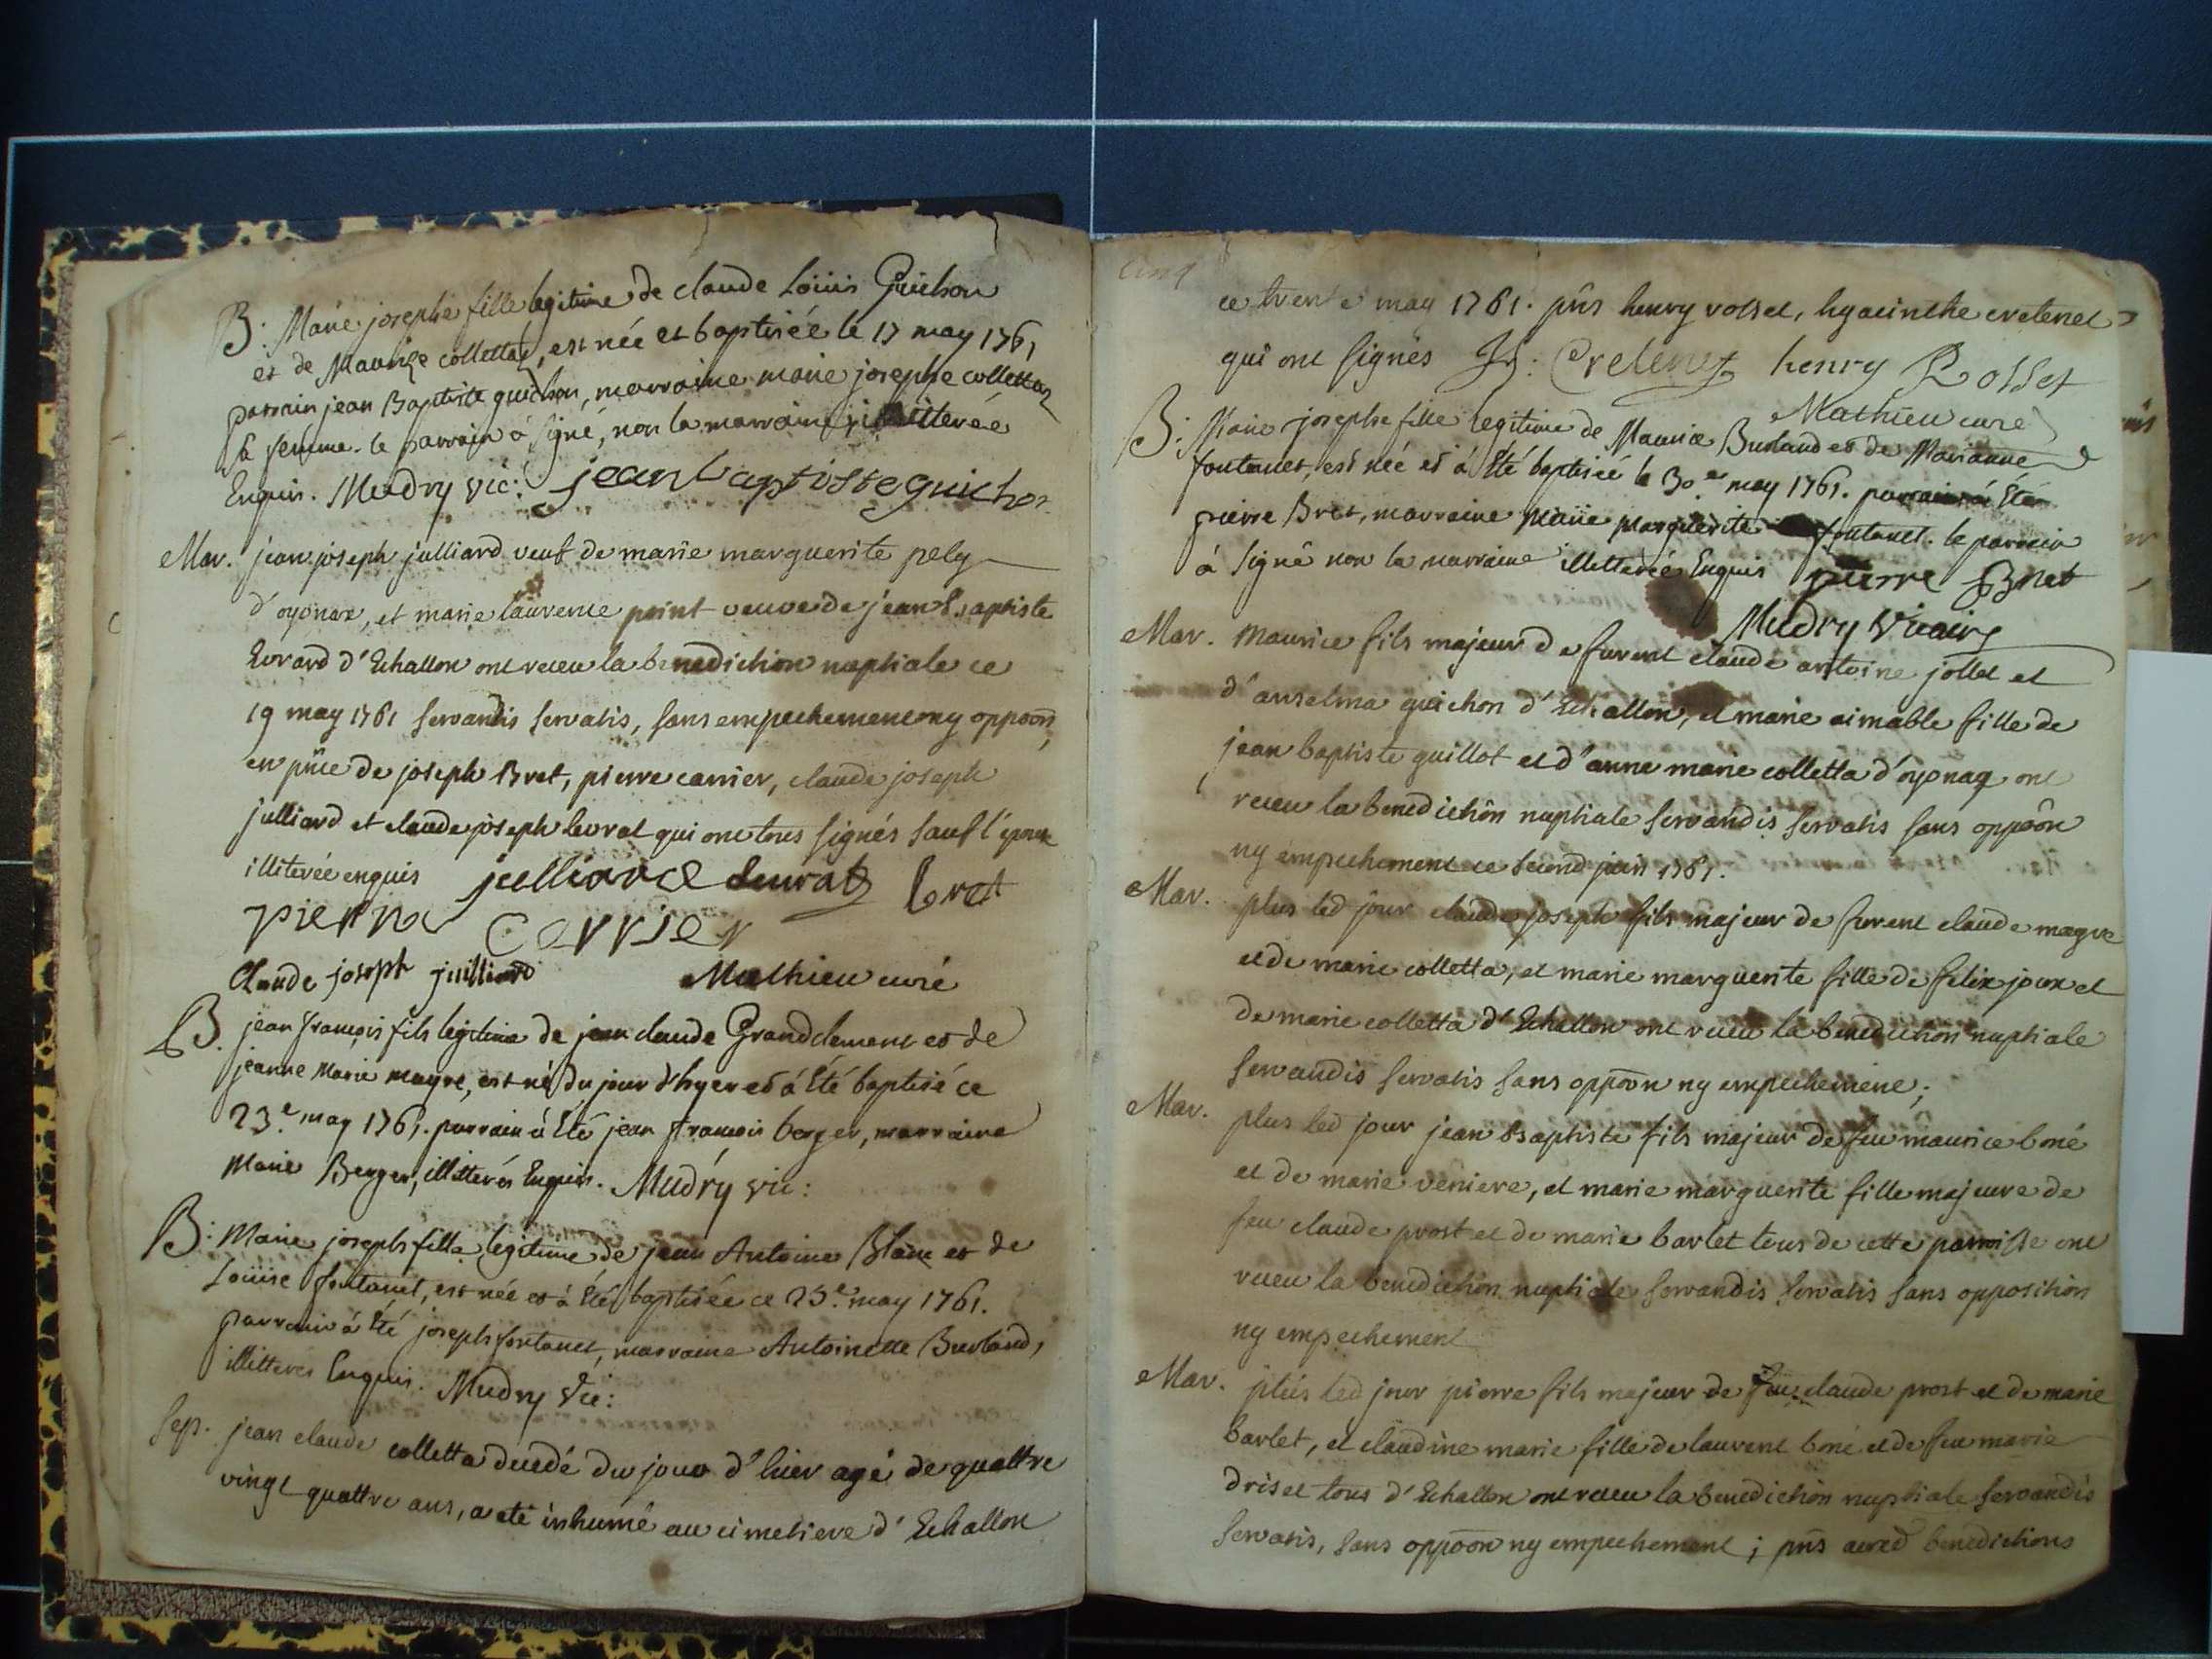 B: Marie josephe fille legitime de claude Loüis Guichon
et de Maurize collettaz, est née et baptisée le 17 may 1761
parrain jean Baptiste guichon, marraine marie josephe collettaz
sa femme. le parrain à signé, non la marraine illiterée
Enquis. Mudry vic: jean baptiste guichon
Mar. jean joseph julliard veuf de marie marguerite pely
d'oyonax, et marie laurence point veuve de jean Baptiste
Evrard d'Echallon ont receu la benediction nuptiale ce
19 may 1761 servandis servatis, sans empechement ny oppoon,
en pñce de joseph Bret, pierre carrier, claude joseph
julliard et claude joseph levrat qui ont tous signés sauf l'épouse
illiterée enquis julliard Leurat bret
pierre Carrier
Claude joseph juilliard Mathieu curé
B. jean françois fils legitime de jean claude Grandclement et de
jeanne Marie maigre, est né du jour d'hyer et à Eté baptisé ce
23.e may 1761. parrain à Eté jean françois berger, marraine
Marie Berger, illitterés Enquis. Mudry vic:
B: Marie joseph fille legitime de jean Antoine Blanc et de
Loüise fontanet, est née et à Eté baptisée ce 25.e may 1761.
parrain à Eté joseph fontanet, marraine Antoinette Burland,
illitteres Enquis. Mudry Vic:
Sep. jean claude colletta decedé du jour d'hier agé de quattre
vingt quattre ans, a eté inhumé au cimetiere d'Echallon
ce trente may 1761. pñs henry rosset, hyacinthe cretenet
qui ont signés Cretenet henry Rosset
Mathieu curé
B: Marie josephe fille legitime de Maurice Burland et de Marianne
fontanet, est née et à Eté baptisée le 30.e may 1761. parrain à Eté
pierre Bret, marraine Marie Marguerite fontanet. le parrain
à signé non la marraine illitterée Enquis pierre Bret
Mudry Vicaire
Mar. Maurice fils majeur de furent claude antoine jollet et
d'anselma guichon d'Echallon, et marie aimable fille de
jean baptiste guillot et d'anne marie colletta d'oyonaq ont
receu la benediction nuptiale servandis servatis sans oppoon
ny empechement ce second juin 1761.
Mar. plus led jour claude joseph fils majeur de furent claude maigre
et de marie colletta, et marie marguerite fille de felix joux et
de marie colletta d'Echallon ont receu la benediction nuptiale
servandis servatis sans oppoon ny empechement;
Mar. plus led jour jean Baptiste fils majeur de feu maurice boné
et de marie veniere, et marie marguerite fille majeure de
feu claude prost et de marie barlet tous de cette paroisse ont
receu la benediction nuptiale servandis servatis sans opposition
ny empechement
Mar. plus led jour pierre fils majeur de feu claude prost et de marie
barlet, et claudine marie fille de laurent boné et de feu marie
driset tous d'Echallon ont receu la benediction nuptiale servandis
servatis, sans oppoon ny empechement; pñs benedictions